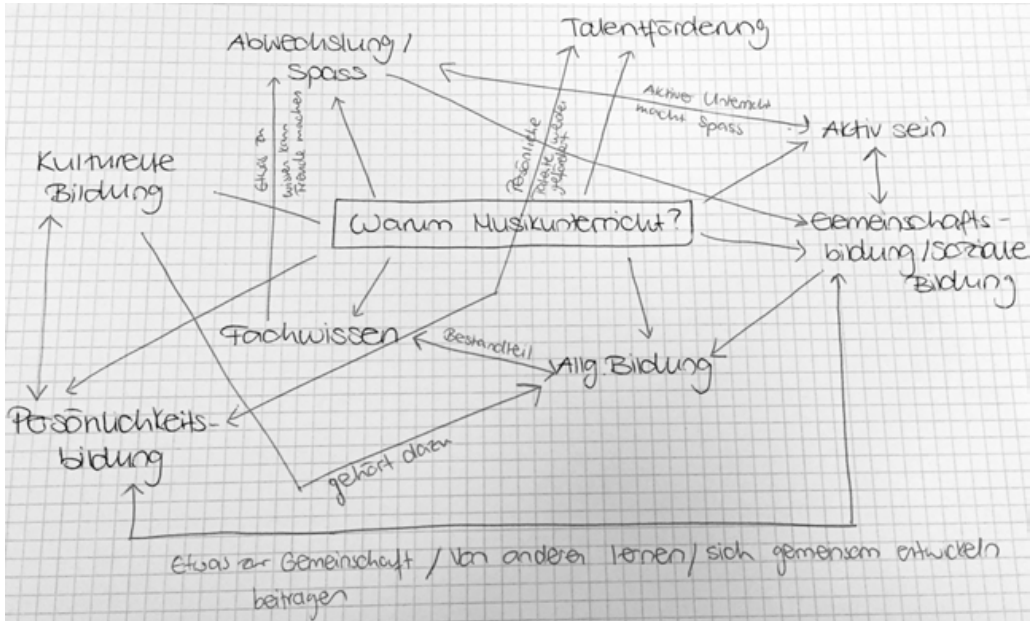 Talentförderung
Abwechslung /
Spass
Aktiver Unterricht
macht Spass
Aktiv sein
Kulturelle
Bildung
Etwas zu
wissen kann
Freude machen
Persönliche
gefördert
Warum Musikunterricht?
Gemeinschafts-
bildung / Soziale
Bildung
Fachwissen
Bestandteil
Allg. Bildung
Persönlichkeits-
bildung
gehört dazu
Etwas zur Gemeinschaft / Von anderen lernen / sich gemeinsam entwickeln
beitragen